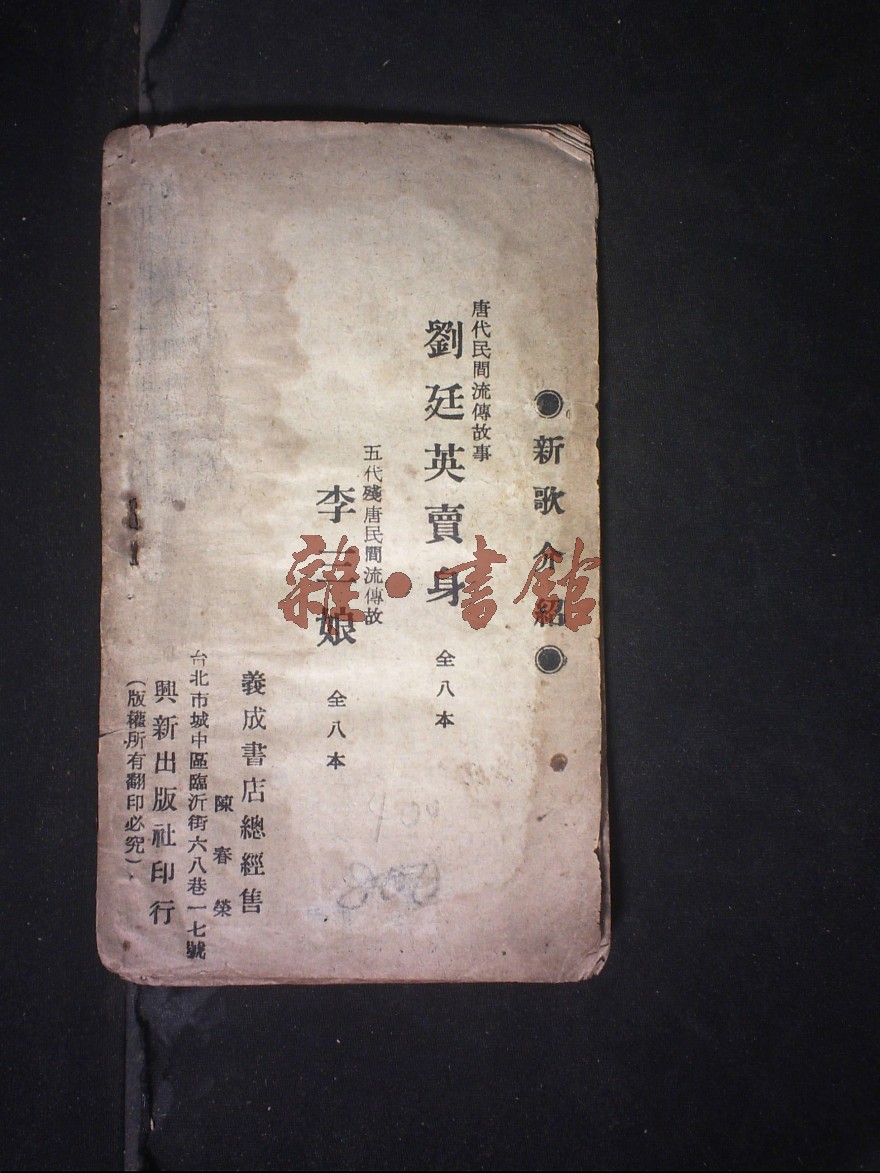 ●新歌介紹●
唐代民間流傳故事
劉廷英賣身
全八本
五代殘唐民間流傳故
李三娘
全八本
義成書店總經售
陳春榮
台北市城中區臨沂街六八巷一七號
興新出版社印行
(版權所有翻印必究)
雜·書館